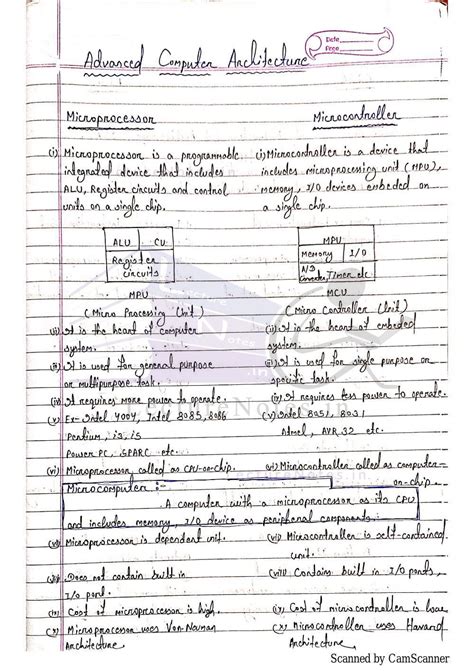 Date
Page
1
Advanced Computer Architecture
Microprocessor
Microcontroller
(i) Microprocessor is a programmable
integrated device that includes
ALU, Register circuits and control
units on a single chip.
(i) Microcontroller is a device that
includes microprocessing unit (MPU),
memory, I/O devices embeded on
a single chip.
ALU CU
Register
circuits
MPU
(Micro Processing Unit)
MPU
Memory I/O
A/D
Timer etc
MCU
(Micro Controller Unit)
(ii) It is the heart of computer
system.
(ii) It is the heart of embeded
system.
(iii) It is used for general purpose
or multipurpose task.
(iii) It is used for single purpose or
specific task.
(iv) It requires more power to operate.
(iv) It requires less power to operate.
(v) Ex- Intel 4004, Intel 8085, 8086
Pentium, i3, i5
Power PC, SPARC etc.
(v) Intel 8051, 8031
Atmel, AVR 32 etc.
(vi) Microprocessor called as CPU-on-chip.
(vi) Microcontroller called as computer-
on-chip.
Microcomputer :-
A computer with a microprocessor as its CPU
and includes memory, I/O device as peripheral components.
(vii) Microprocessor is dependant unit.
(vii) Microcontroller is self-contained
unit.
(viii) Does not contain built in
I/O port.
(viii) Contains built in I/O ports,
(ix) Cost of microprocessor is high.
(ix) Cost of microcontroller is low
(x) Microprocessor uses Von-Neuman
Architecture
(x) Microcontroller uses Havard
Architecture
Scanned by CamScanner